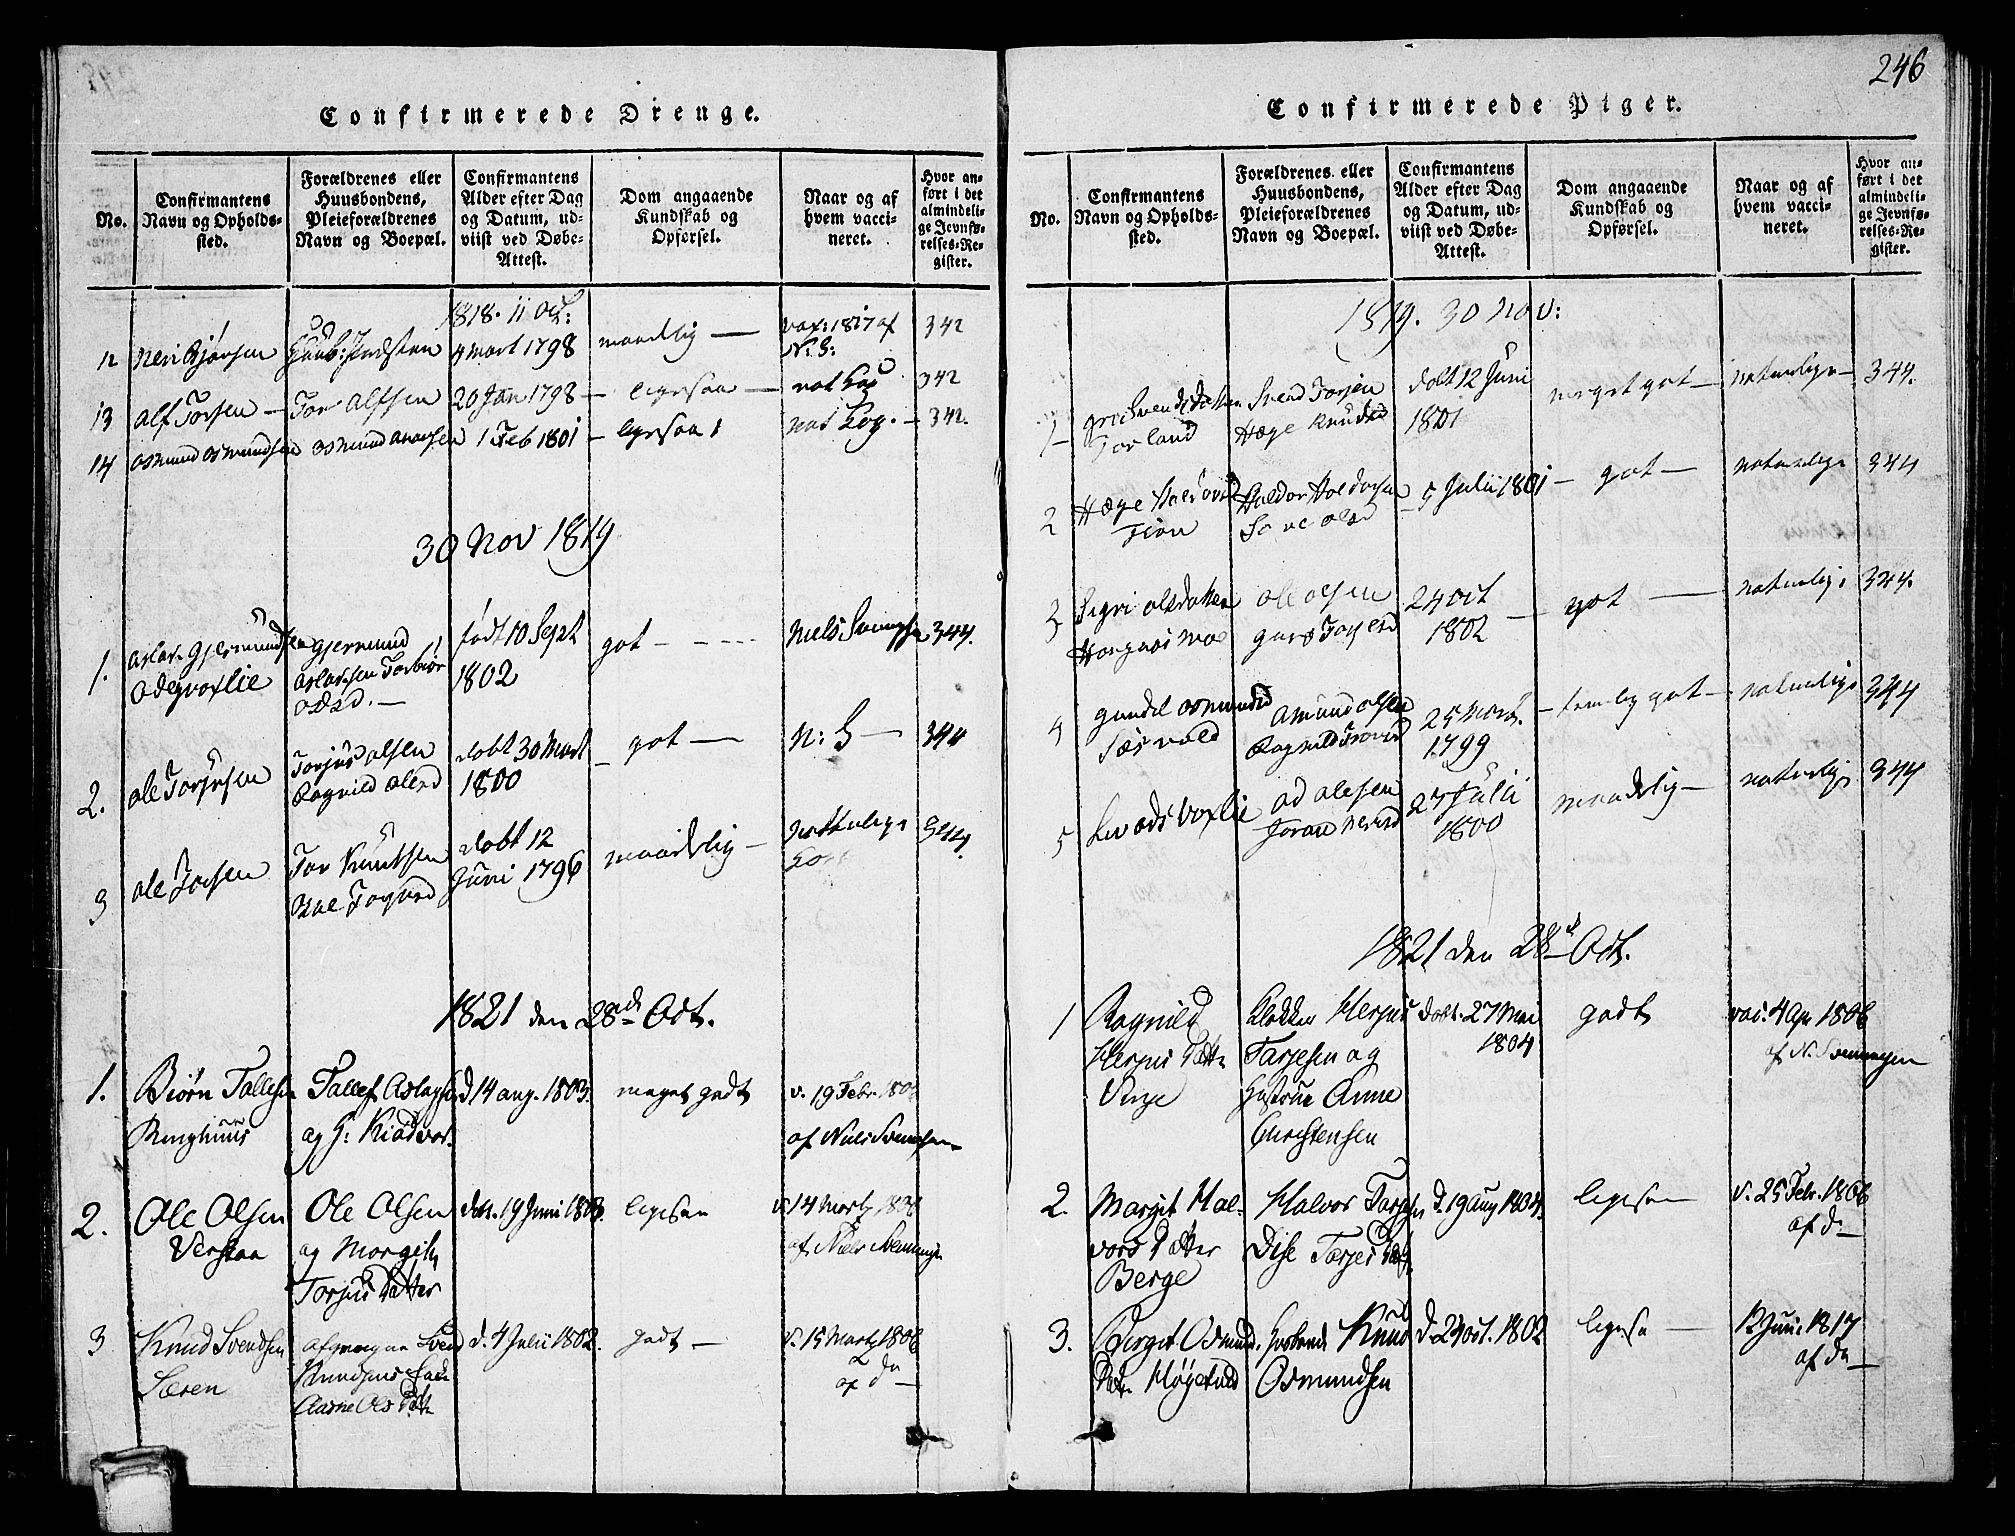 246
Confirmerede Drenge.
No.
Confirmantens
Navn og Opholds-
sted.
Forældrenes eller
Huusbondens,
Pleieforældrenes
Navn og Boepæl.
Confirmantens
Alder efter Dag
og Datum, ud-
viist ved Døbe-
Attest.
Dom angaaende
Kundskab og
Opførsel.
Naar og af
hvem vacci-
neret.
Hvor an-
ført i det
almindeli-
ge Jevnfø-
relses-Re-
gister.
1818. 11 Oct:
12 Neri Bjørsen
4 Mart 1798
maadelig —
vax: 1817 af
N: S:
342
13 Alf Torsen — Tor Alfsen 20 Jan 1798 — ligesaa — nat Kop 342
14 Osmund Osmundsen Osmund 1 Feb 1801 — ligesaa nat Kop. — 342.
30 Nov 1819
1. Aslak Gjermundsen
Gjermund
Aslaksen Torbiør
Olsd. —
født 10 Sept
1802
got —
Niels Svenningsen 344.
2. Ole Torjusen
Torjus Olsen
Ragnild Olesd
dobt 30 Mart
1800
— got —
N: S —
344
3 Ole Torsen
Tor Knutsen
dobt 12
Juni 1796
maadelig —
Nattulige
Kop
344.
1821 den 28de Oct.
1. Biørn Tallefsen
Tallef Aslagsen
og G: Kiødvor.
d 14 aug. 1803.
meget godt
v. 19 Febr. 1806
af Niels Svenningsen
2. Ole Olsen
Verstaa
Ole Olsen
og Morgith
Torjus Datter
døbt. 19 Juni 1803.
ligesaa
v 14 Marts 1806
af Niels Svenningsen
3 Knud Svendsen
Særen
afgangne Svend
Knudsens
Aasne Ols Datr
d. 4 Julii 1802.
godt —
v. 15 Marts 1806
af do —
Confirmerede Piger.
No.
Confirmantens
Navn og Opholds-
sted.
Forældrenes. eller
Huusbondens,
Pleieforældrenes
Navn og Boepæl.
Confirmantens
Alder efter Dag
og Datum, ud-
viist ved Døbe-
Attest.
Dom angaaende
Kundskab og
Opførsel.
Naar og af
hvem vacci-
neret.
Hvor an-
ført i det
almindeli-
ge Jevnfø-
relses-Re-
gister.
1819. 30 Nov:
1 Svendsdatter
Torland
Svend Torsen
Hæge Knudsd
dobt 12 Juni
1801
meget got —
naturlige —
344.
2 Hæge Haldorsd
Haldor Haldorsen
5 Julii 1801
— got —
naturlige
344
3 Sigri Olsdatter
Ole Olsen
24 Oct
1802
— got —
naturlige
344.
4 Gundel Osmundsd
Amund Olsen
25 Nov.
1799
— temelig got —
naturlige
344
5 Liv Ods Voxlie
Od Olesen
27 Julii
1800
maadelig —
naturlig
344
1821 den 28de Oct.
1 Ragnild
Herjus Dattr
Vinje
Klokker Herjus
Tarjesen og
Hustrue Anne
Christensen
døbt. 27 Mai
1804
godt
vac: 4 Apr 1806
af N. Svenningsen
2. Margit Hal-
vors Datter
Berge
Halvor Tarjesen
Dise Tarjes Datt.
d. 19 aug 1804.
ligesaa —
v. 25 Febr. 1806
af do —
3. Birgit Osmund.
Datr Høgetveld
Husbonde Knud
Osmundsen
d. 24 oct. 1802
ligesa —
12 Juni 1817
af do —